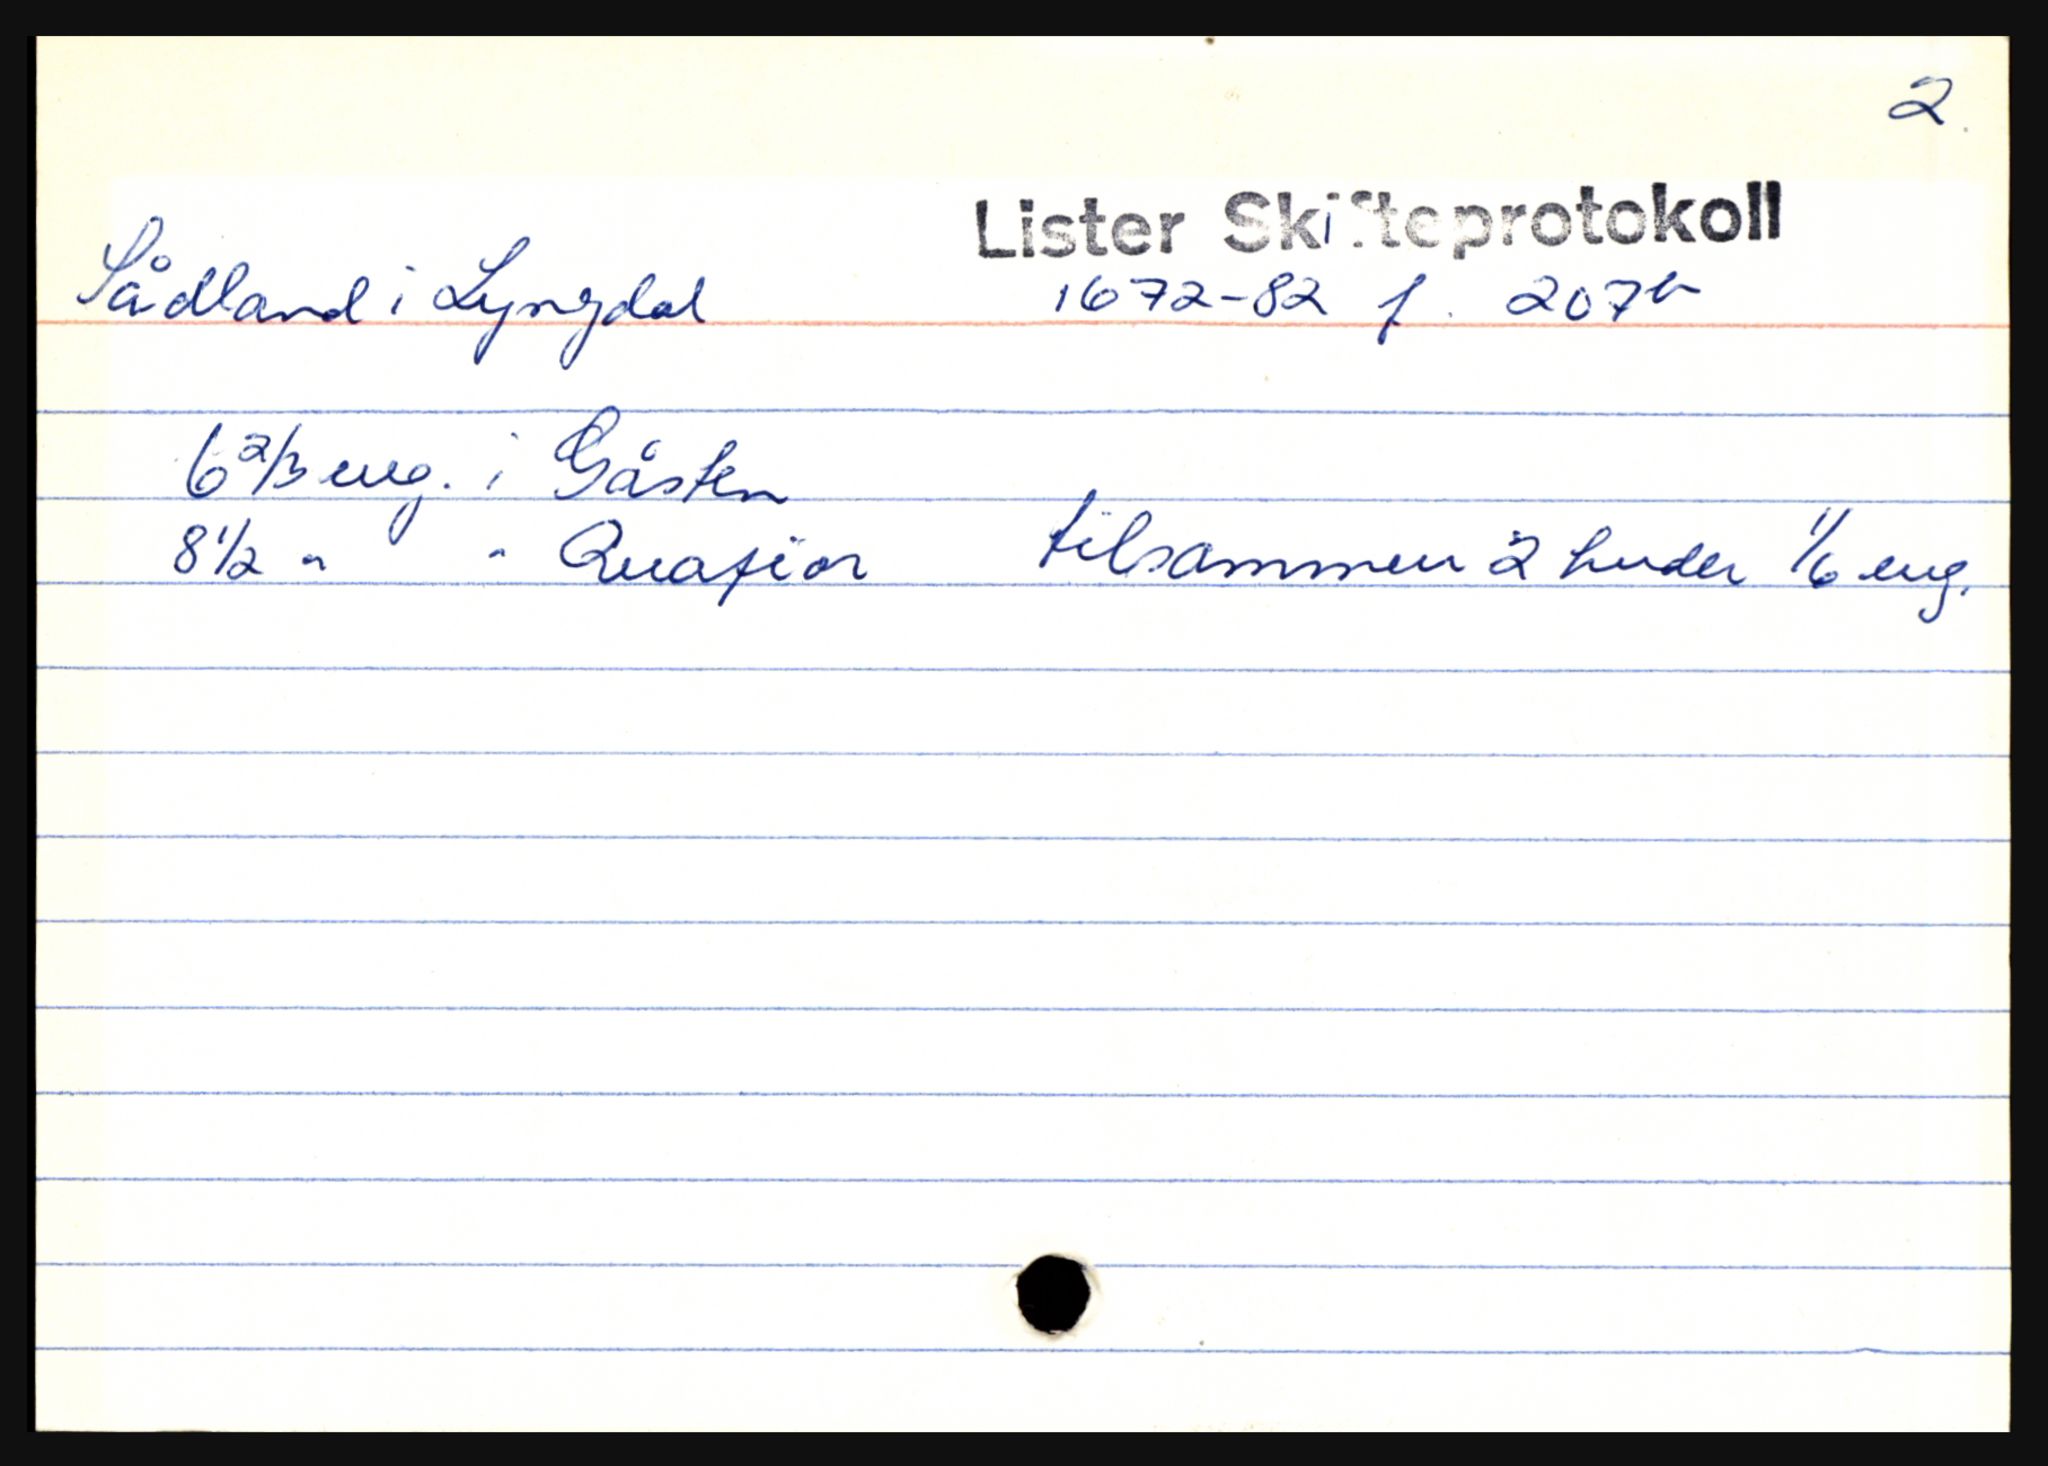 2.
Lister Skifteprotokoll
Sådland i Lyngdal 1672-82 f. 207b
6 2/3 eng. i Gåsten
8 1/2 " " Quafior tilsammen 2 huder 1/6 eng.